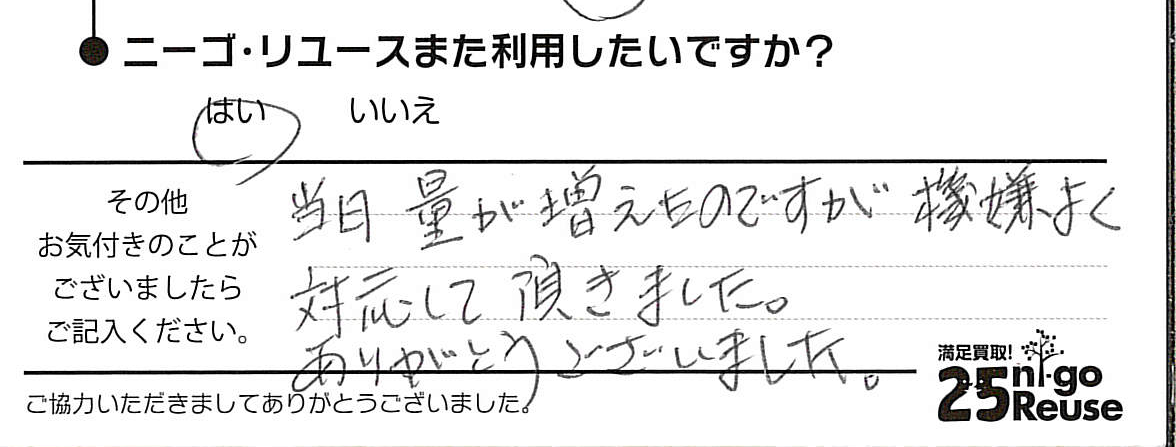 ニーゴ・リユースまた利用したいですか？
はい いいえ
その他
お気付きのことが
ございましたら
ご記入ください。
当日 量が増えたのですが 機嫌よく
対応して頂きました。
ありがとうございました。
ご協力いただきましてありがとうございました。
満足買取!
25 ni-go
Reuse